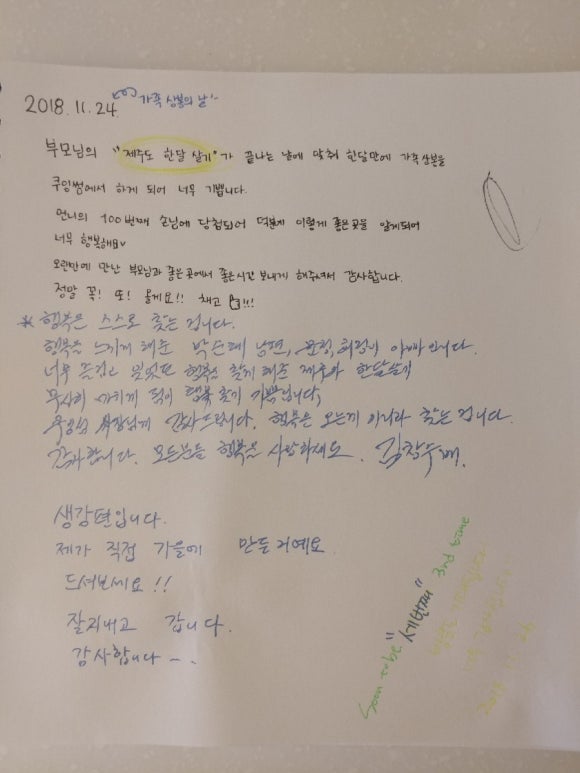 2018.11.24. 가족 상봉의 날
부모님의 "제주도 한달 살기"가 끝나는 날에 맞춰 한달만에 가족상봉을
쿠잉썸에서 하게 되어 너무 기쁩니다.
언니의 100번째 손님에 당첨되어 덕분에 이렇게 좋은곳을 알게되어
너무 행복해요v
오랜만에 만난 부모님과 좋은곳에서 좋은시간 보내게 해주셔서 감사합니다.
정말 꼭! 또! 올게요!! 채고!!!
* 행복은 스스로 찾는 겁니다.
행복을 느끼게 해준 남편, 아빠 입니다.
너무 즐겁고 행복을 찾게 해준 제주의 한달살기
무사히 마치게 됨이 행복 찾기 기쁩니다,
사장님께 감사드립니다. 행복은 오는게 아니라 찾는 겁니다.
감사합니다. 모든분들 행복을 사랑하세요.
생강편입니다.
제가 직접 가을에 만든거예요
드셔보세요!!
잘지내고 갑니다.
감사합니다~.
Soon to be "세번째" 3rd time